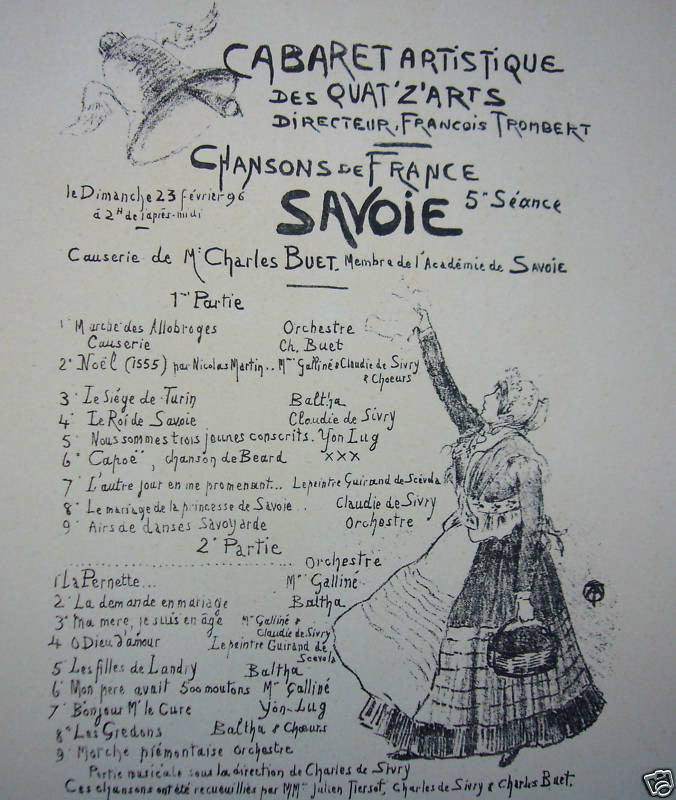 CABARET ARTISTIQUE
DES QUAT'Z'ARTS
DIRECTEUR, FRANCOIS TROMBERT
CHANSONS DE FRANCE
le Dimanche 23 février 96
à 2H de l'après-midi
SAVOIE 5e Séance
Causerie de Mr Charles BUET. Membre de l'Académie de SAVOIE
1re Partie
1° Marche des Allobroges Orchestre
Causerie Ch. Buet
2° Noël (1555) par Nicolas Martin.. Mme Galliné & Claudie de Sivry
& Choeurs
3° Le Siége de Turin Baltha
4° Le Roi de Savoie Claudie de Sivry
5 Nous sommes trois jeunes conscrits. Yon Lug
6° "Capoë", chanson de Beard xxx
7° L'autre jour en me promenant... Le peintre Guirand de Scévola
8° Le mariage de la princesse de Savoie.. Claudie de Sivry
9° Airs de danses Savoyarde Orchestre
2e Partie
Orchestre
1 La Pernette... Mme Galliné
2° La demande en mariage Baltha
3° Ma mere, je suis en âge Me Galliné &
Claudie de Sivry
4 O Dieu d'amour Le peintre Guirand de
Scévola
5 Les filles de Landry Baltha
6° Mon pere avait 500 moutons Mme Galliné
7° Bonjour Mr le Cure Yon-Lug
8° Les Gredons Baltha & Choeurs
9° Marche piémontaise Orchestre
Partie musicale sous la direction de Charles de Sivry
Ces chansons ont été recueuillies par MMrs Julien Tiersot, Charles de Sivry & Charles Buet.